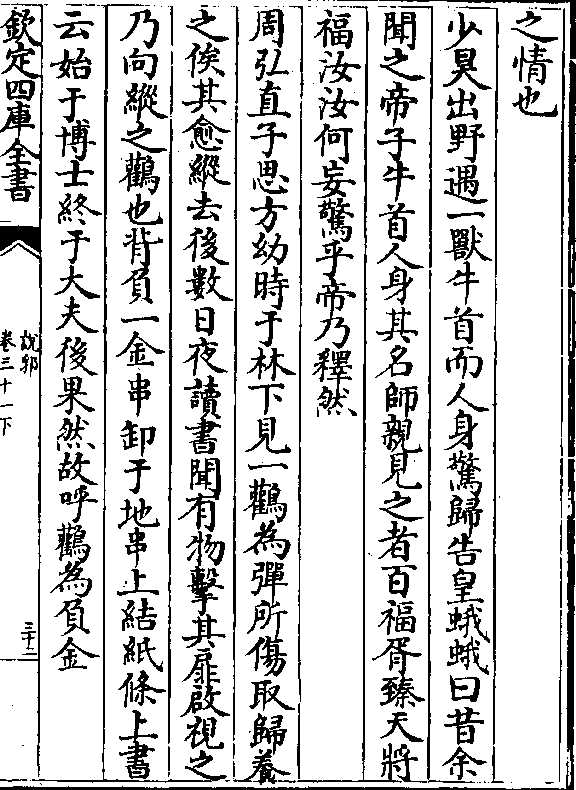 之情也
少昊出野遇一獸牛首而人身驚歸告皇蛾蛾曰昔余
聞之帝子牛首人身其名師親見之者百福胥臻天將
福汝汝何妄驚乎帝乃釋然
周弘直子思方幼時于林下見一鸛為彈所傷取歸養
之俟其愈縱去後數日夜讀書聞有物擊其扉啟視之
乃向縱之鸛也背負一金串卸于地串上結紙條上書
云始于博士終于大夫後果然故呼鸛為負金
欽定四庫全書
說郛
卷三十一下
三十三